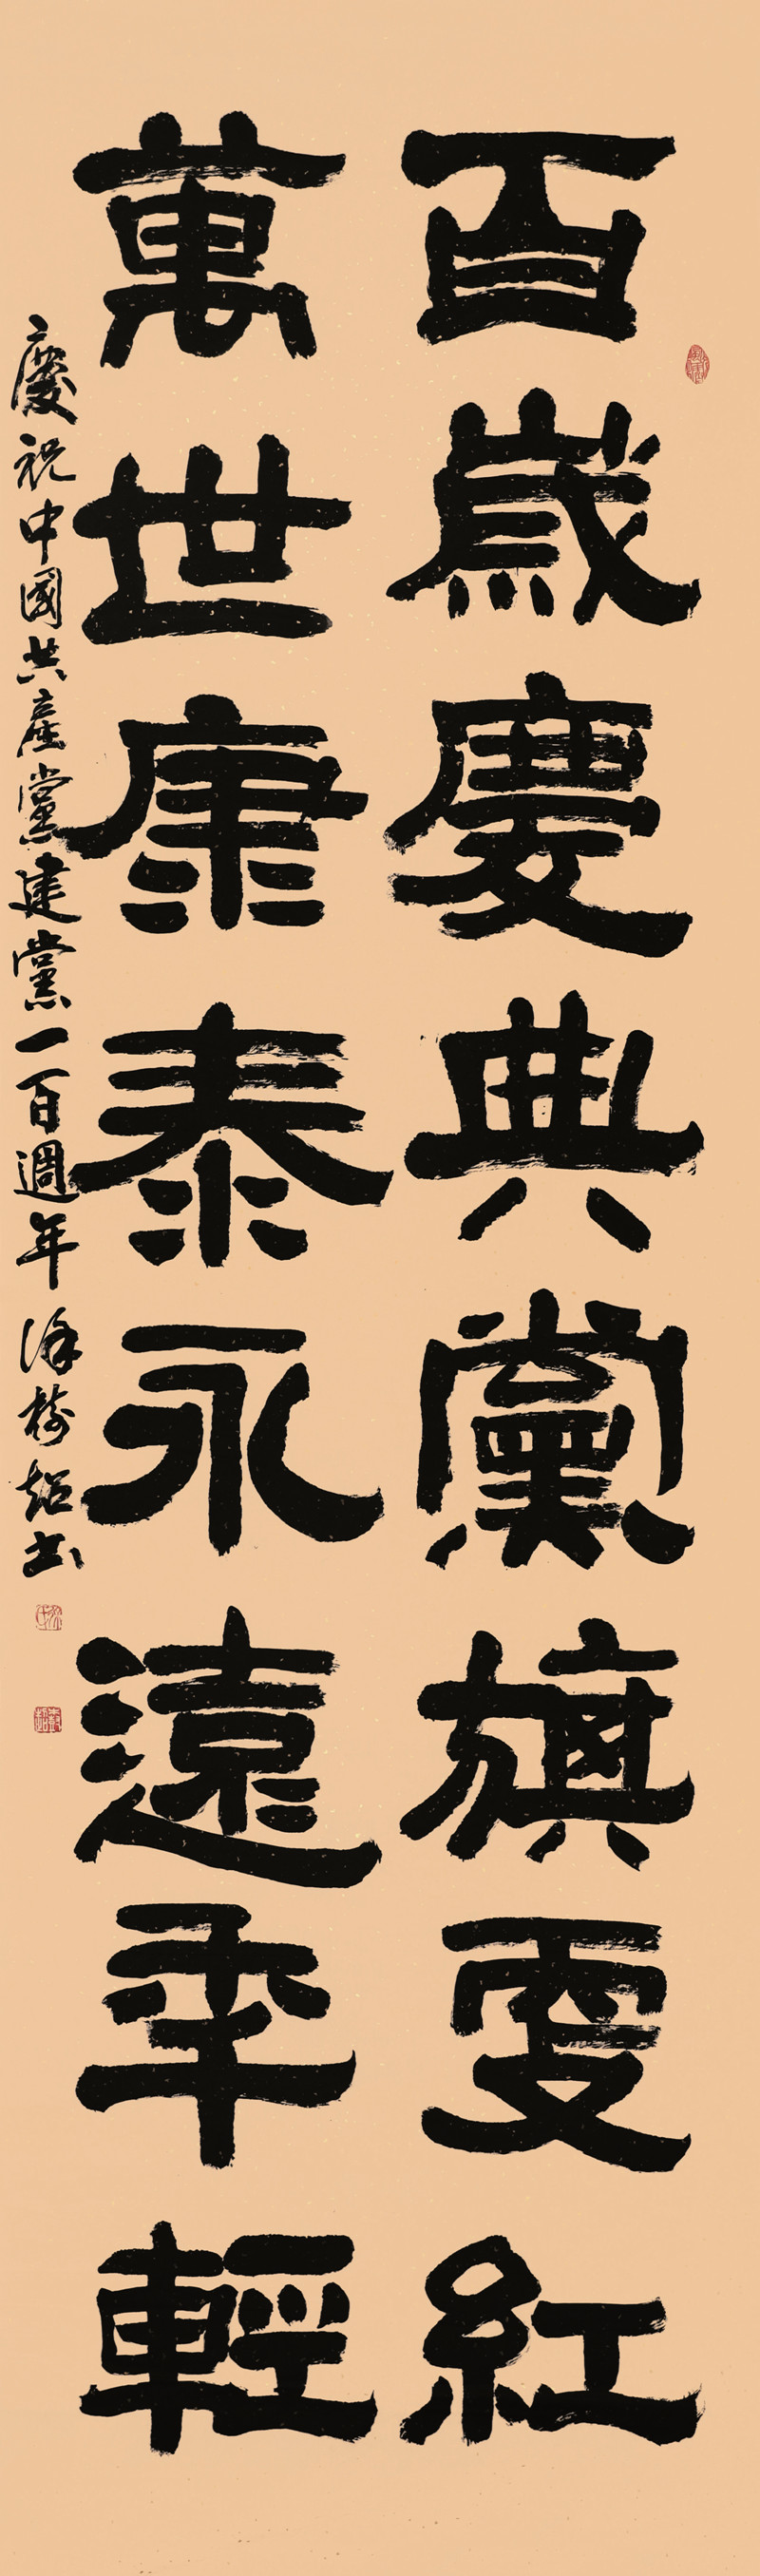 百歲慶典黨旗更紅
萬世康泰永遠年輕
慶祝中國共產黨建黨一百週年 徐樹超書